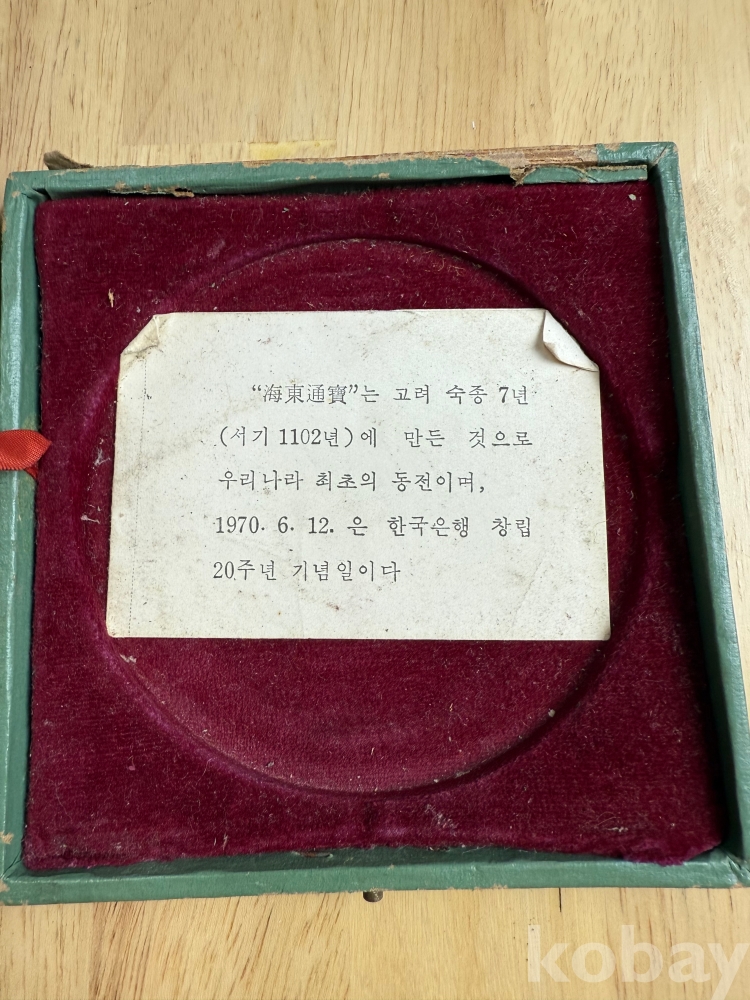 “海東通寶”는 고려 숙종 7년
(서기 1102년)에 만든 것으로
우리나라 최초의 동전이며,
1970. 6. 12. 은 한국은행 창립
20주년 기념일이다
kobay